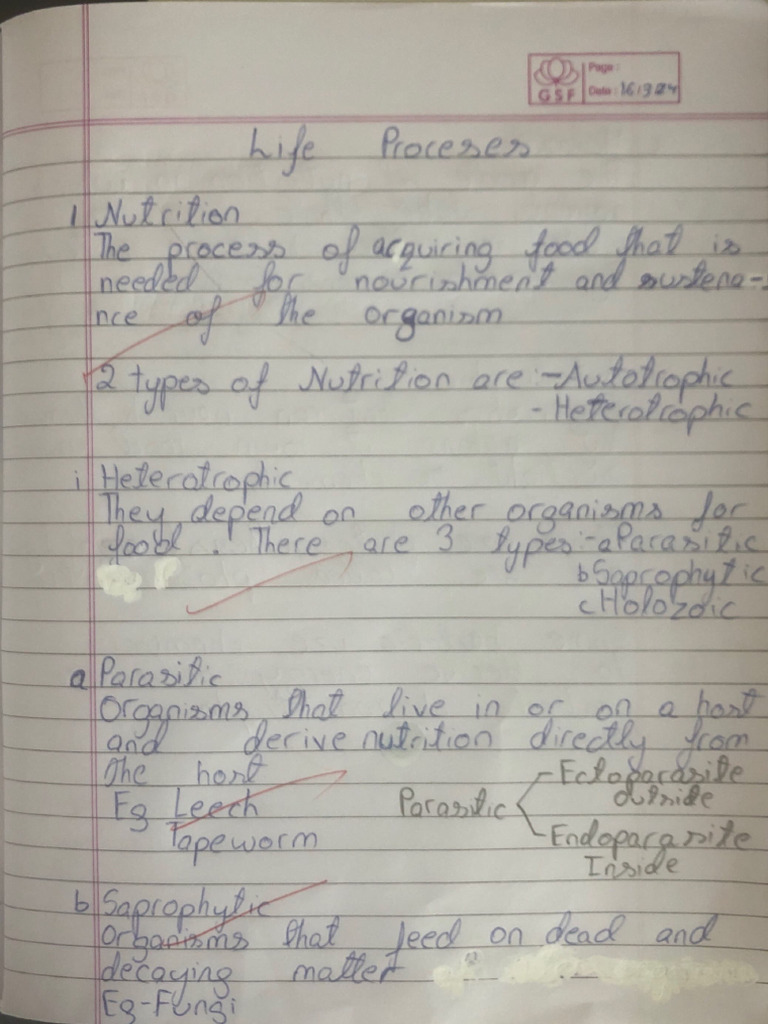 GSF
Page :
Date : 16/9/24
Life Proceses
1 Nutrition
The process of acquiring food that is
needed for nourishment and sustena-
nce of the organism
2 types of Nutrition are :- Autotrophic
- Heterotrophic
i Heterotrophic
They depend on other organisms for
food . There are 3 types :- a Parasitic
b Saprophytic
c Holozoic
a Parasitic
Organisms that live in or on a host
and derive nutrition directly from
the host
Eg Leech
Tapeworm
Parasitic
- Ectoparasite
Outside
- Endoparasite
Inside
b Saprophytic
Organisms that feed on dead and
decaying matter
Eg - Fungi